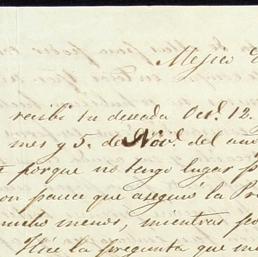 Mejico
recibi tu deseada Oct. 12.
mes y 5. de Nov. del
porque no tengo lugar
pauca que aseguió la
mucho menos, mientras
Hice la pregunta que me